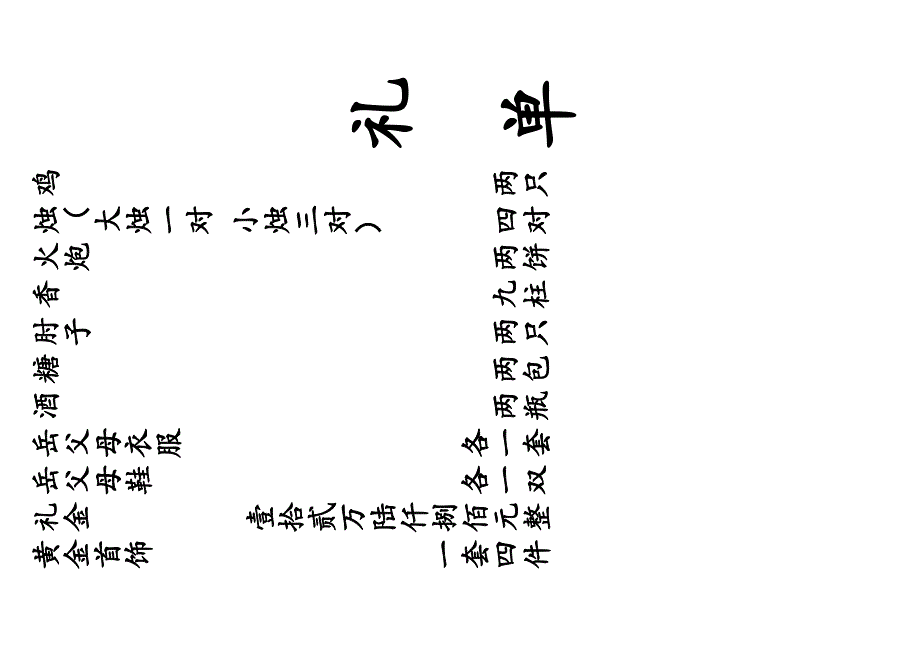 礼单
鸡 两只
烛（大烛一对 小烛三对） 四对
火炮 两饼
香 九柱
肘子 两只
糖 两包
酒 两瓶
岳父母衣服 各一套
岳父母鞋 各一双
礼金 壹拾贰万陆仟捌佰元整
黄金首饰 一套四件